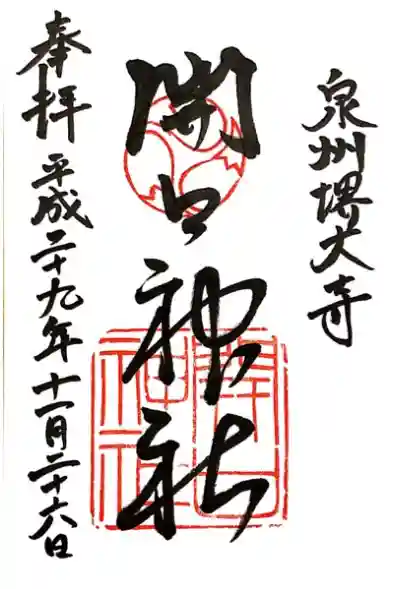 泉州堺大寺
開口神社
開口
神社
奉拝 平成二十九年十一月二十六日